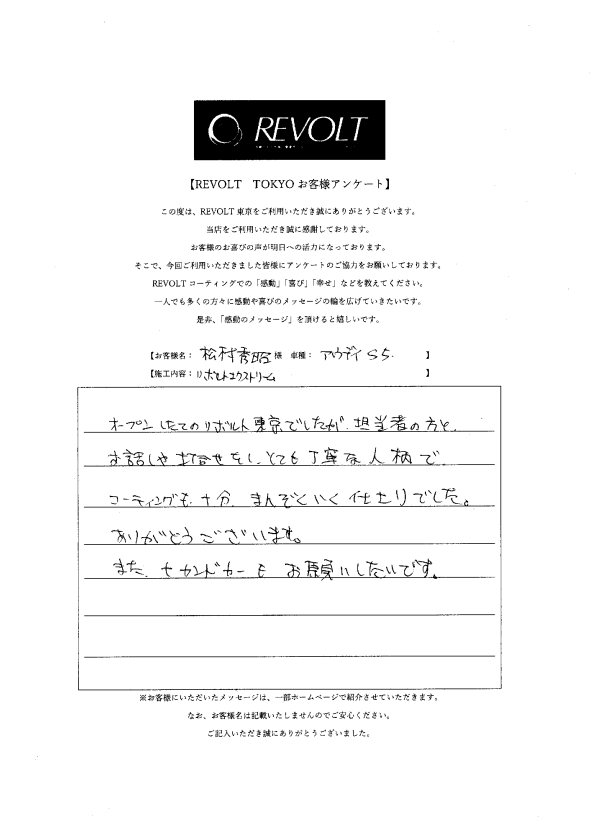 REVOLT
【REVOLT　TOKYO お客様アンケート】
この度は、REVOLT 東京をご利用いただき誠にありがとうございます。
当店をご利用いただき誠に感謝しております。
お客様のお喜びの声が明日への活力になっております。
そこで、今回ご利用いただきました皆様にアンケートのご協力をお願いしております。
REVOLT コーティングでの「感動」「喜び」「幸せ」などを教えてください。
一人でも多くの方々に感動や喜びのメッセージの輪を広げていきたいです。
是非、「感動のメッセージ」を頂けると嬉しいです。
【お客様名： 松村秀昭 様　車種： アウディ S5. 】
【施工内容： リボルトエクストリーム 】
オープンしたてのリボルト東京でしたが、担当者の方と、
お話しや打合せをし、とても丁寧な人柄で
コーティングも、十分、まんぞくいく仕上りでした。
ありがとうございます。
また、セカンドカーも お願いしたいです。
※お客様にいただいたメッセージは、一部ホームページで紹介させていただきます。
なお、お客様名は記載いたしませんのでご安心ください。
ご記入いただき誠にありがとうございました。